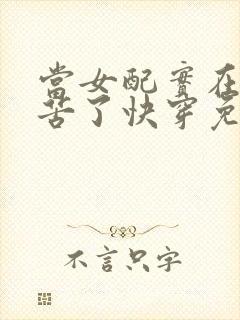 當女配實在
苦了快穿免
不言只字